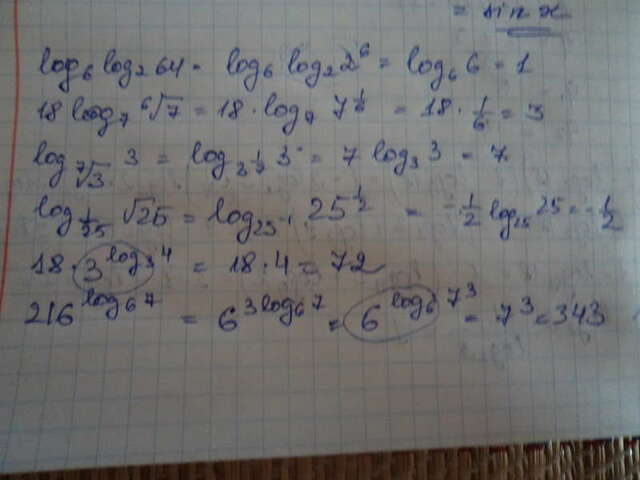 = sin x
log₆ log₂ 64 = log₆ log₂ 2⁶ = log₆ 6 = 1
18 log₇ ⁶√7 = 18 · log₇ 7^(1/6) = 18 · 1/6 = 3
log_(⁷√3) 3 = log_(3^(1/7)) 3 = 7 log₃ 3 = 7
log_(1/25) √25 = log_(25⁻¹) 25^(1/2) = -1/2 log₂₅ 25 = -1/2
18 · 3^(log₃ 4) = 18 · 4 = 72
216^(log₆ 7) = 6^(3 log₆ 7) = 6^(log₆ 7³) = 7³ = 343